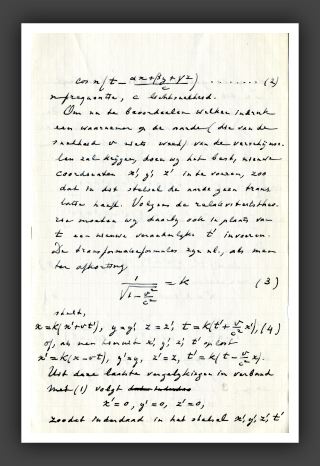 cos n (t - (αx+βy+γz)/c) ........ (2)
n frequentie, c lichtsnelheid.
Om nu te beoordeelen welken indruk
een waarnemer op de aarde (die van de
snelheid v niets weet) van de verschijnse-
len zal krijgen, doen wij het best, nieuwe
coordinaten x', y', z' in te voeren, zoo
dat in dit stelsel de aarde geen trans
latie heeft. Volgens de relativiteitstheo-
rie moeten wij daarbij ook in plaats van
t een nieuwe veranderlijke t' invoeren.
De transformatieformules zijn nl., als men
ter afkorting
1/√(1 - v²/c²) = k (3)
stelt,
x = k(x'+vt'), y=y', z = z', t = k(t'+ v/c² x'), (4)
of, als men hieruit x', y', z', t' oplost
x' = k(x-vt), y'=y, z'=z, t' = k(t - v/c² x).
Uit deze laatste vergelijkingen in verband
met (1) volgt
x'=0, y'=0, z'=0,
zoodat inderdaad in het stelsel x', y', z', t'